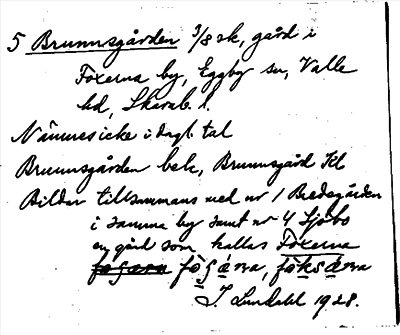 5 Brunnsgården 3/8 sk, gård i
Foxerna by, Eggby sn, Valle
hd, Skarab. l.
Nämnes icke i dagl. tal
Brunnsgården bek, Brunnsgård Kl
Bildar tillsammans med nr 1 Bredegården
i samma by samt nr 4 Sjöbo
en gård som kallas Foxerna
fògǻna, fò̀ksǻna
J. Lundahl 1928.